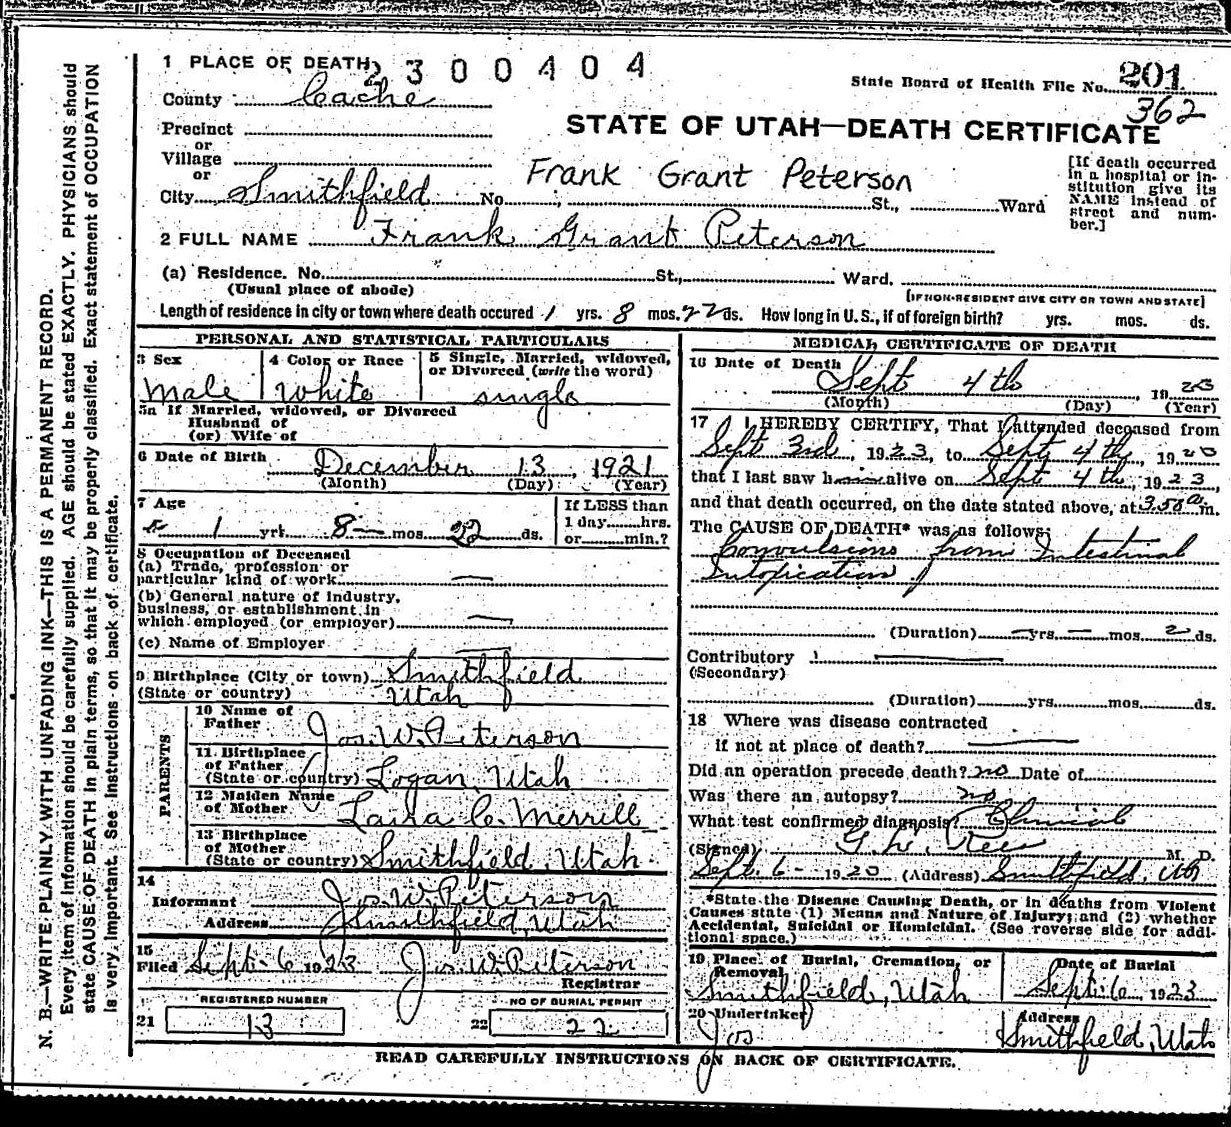 1 PLACE OF DEATH 2300404
State Board of Health File No. 201
362
County Cache
STATE OF UTAH—DEATH CERTIFICATE
Precinct
or
Village
or
City Smithfield No. St., Ward
Frank Grant Peterson
[If death occurred in a hospital or institution give its NAME instead of street and number.]
2 FULL NAME Frank Grant Peterson
(a) Residence. No. St., Ward.
(Usual place of abode)
[IF NON-RESIDENT GIVE CITY OR TOWN AND STATE]
Length of residence in city or town where death occured 1 yrs. 8 mos. 22 ds. How long in U. S., if of foreign birth? yrs. mos. ds.
PERSONAL AND STATISTICAL PARTICULARS
3 Sex
Male
4 Color or Race
White
5 Single, Married, widowed, or Divorced (write the word)
single
5a If Married, widowed, or Divorced
Husband of
(or) Wife of
6 Date of Birth December 13, 1921
(Month) (Day) (Year)
7 Age
1 yrs. 8 mos. 22 ds.
If LESS than
1 day hrs.
or min.?
8 Occupation of Deceased
(a) Trade, profession or
particular kind of work
(b) General nature of industry,
business, or establishment in
which employed (or employer)
(c) Name of Employer
9 Birthplace (City or town) Smithfield
(State or country) Utah
PARENTS
10 Name of
Father Jos. W. Peterson
11 Birthplace
of Father
(State or country) Logan, Utah
12 Maiden Name
of Mother Laura C. Merrill
13 Birthplace
of Mother
(State or country) Smithfield, Utah
14
Informant Jos. W. Peterson
Address Smithfield, Utah
15
Filed Sept. 6 1923 Jos. W. Peterson
Registrar
REGISTERED NUMBER
21 13
NO OF BURIAL PERMIT
22 22
MEDICAL CERTIFICATE OF DEATH
16 Date of Death
Sept 4th, 1923
(Month) (Day) (Year)
17 I HEREBY CERTIFY, That I attended deceased from
Sept 3rd, 1923, to Sept 4th, 1923
that I last saw him alive on Sept 4th, 1923,
and that death occurred, on the date stated above, at 3.50 a. m.
The CAUSE OF DEATH* was as follows:
Convulsions from Intestinal
Intoxication
(Duration) — yrs. — mos. 2 ds.
Contributory
(Secondary)
(Duration) yrs. mos. ds.
18 Where was disease contracted
if not at place of death?
Did an operation precede death? no Date of
Was there an autopsy? no
What test confirmed diagnosis? Clinical
(Signed) M. D.
Sept. 6 - 1923 (Address) Smithfield, Ut
*State the Disease Causing Death, or in deaths from Violent
Causes state (1) Means and Nature of Injury; and (2) whether
Accidental, Suicidal or Homicidal. (See reverse side for additional space.)
19 Place of Burial, Cremation, or
Removal
Smithfield, Utah
Date of Burial
Sept. 6, 1923
20 Undertaker
Jos
Address
Smithfield, Utah
READ CAREFULLY INSTRUCTIONS ON BACK OF CERTIFICATE.
N. B.—WRITE PLAINLY WITH UNFADING INK—THIS IS A PERMANENT RECORD.
Every item of information should be carefully supplied. AGE should be stated EXACTLY. PHYSICIANS should
state CAUSE OF DEATH in plain terms, so that it may be properly classified. Exact statement of OCCUPATION
is very important. See instructions on back of certificate.